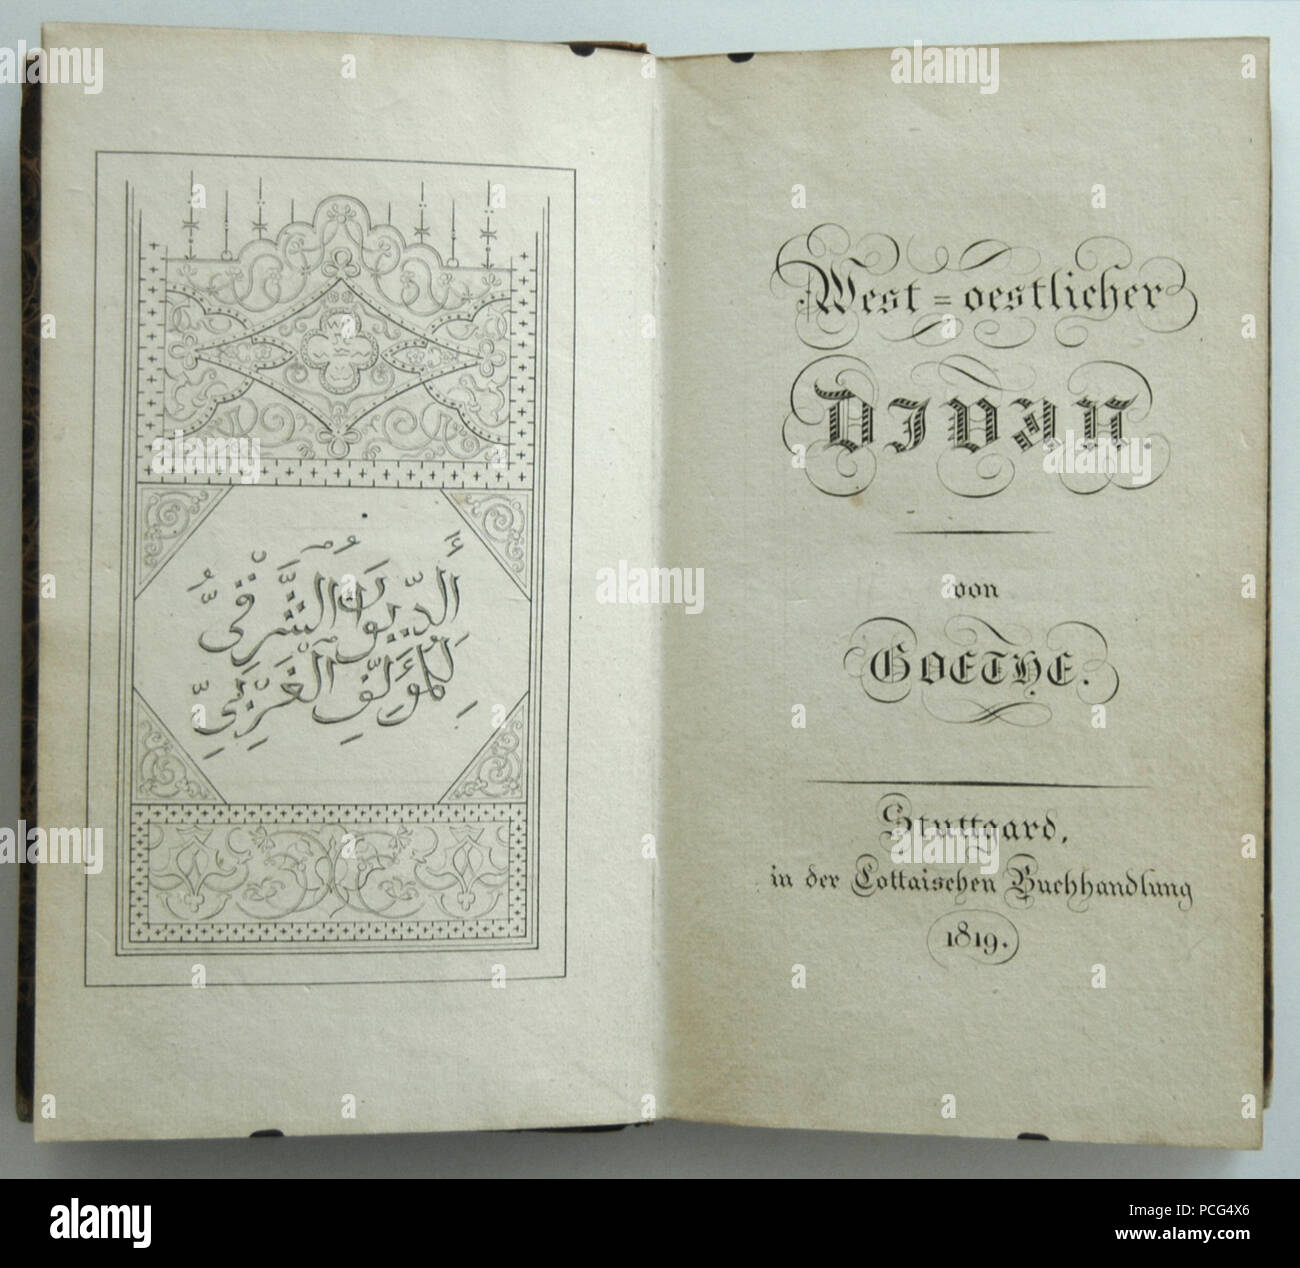 أَلدِّيوَانُ الشَّرْقِيُّ
لِلْمُؤَلِّفِ الْغَرْبِيِّ
West=oestlicher
DIVAN.
von
GOETHE.
Stuttgard,
in der Cottaischen Buchhandlung
1819.
alamy
PCG4X6
www.alamy.com